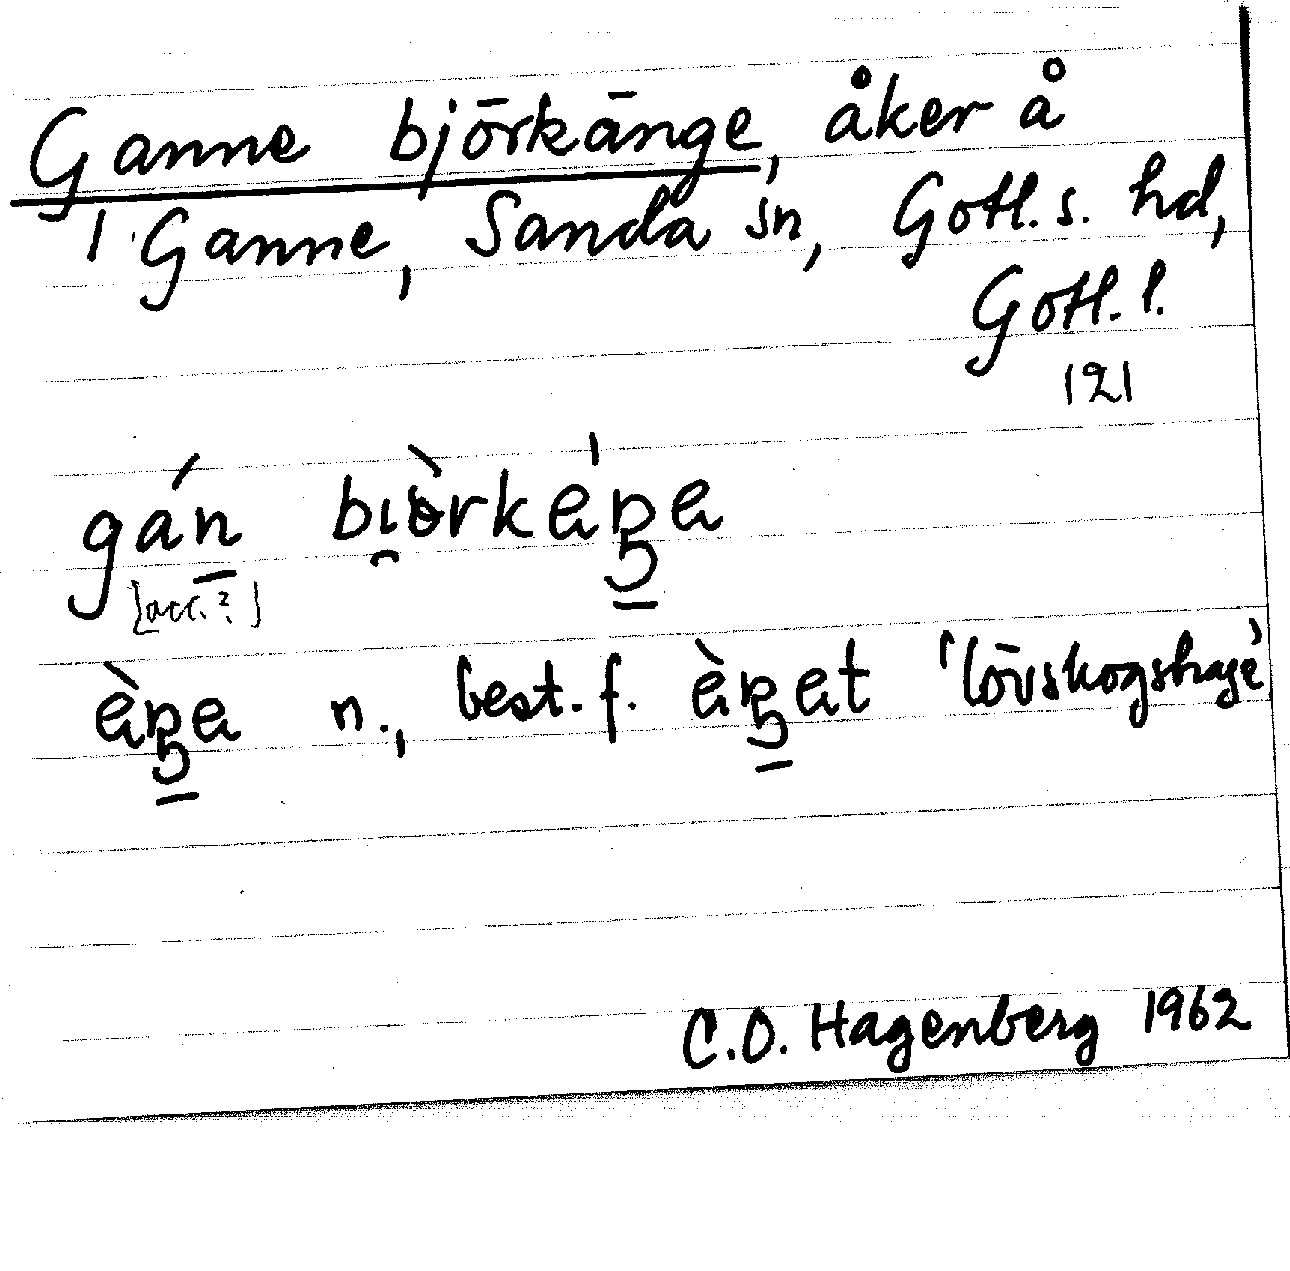 Ganne björkänge, åker å
1 Ganne, Sanda sn, Gotl. s. hd,
Gotl. l.
121
gán
[acc.?]
n., best. f. 'lövskogshage'
C.O. Hagenberg 1962